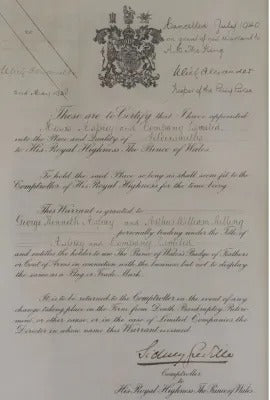 Cancelled July 1940
on grant of new Warrant to
H.M. The King
Ulick Alexander
Keeper of the Privy Purse
Ulick Alexander
2nd May 1941
These are to Certify that I have appointed
and Company Limited
into the Place and Quality of Silversmiths
to His Royal Highness The Prince of Wales.
To hold the said Place so long as shall seem fit to the
Comptroller of His Royal Highness for the time being.
This Warrant is granted to
George Kenneth and Arthur William
personally trading under the Title of
and Company Limited
and entitles the holder to use The Prince of Wales's Badge of Feathers
or Coat of Arms in connection with the business but not to display
the same as a Flag or Trade Mark.
It is to be returned to the Comptroller in the event of any
change taking place in the Firm from Death Bankruptcy Retire-
ment or other cause, or in the case of Limited Companies the
Director in whose name this Warrant is issued.
Comptroller
to
His Royal Highness The Prince of Wales